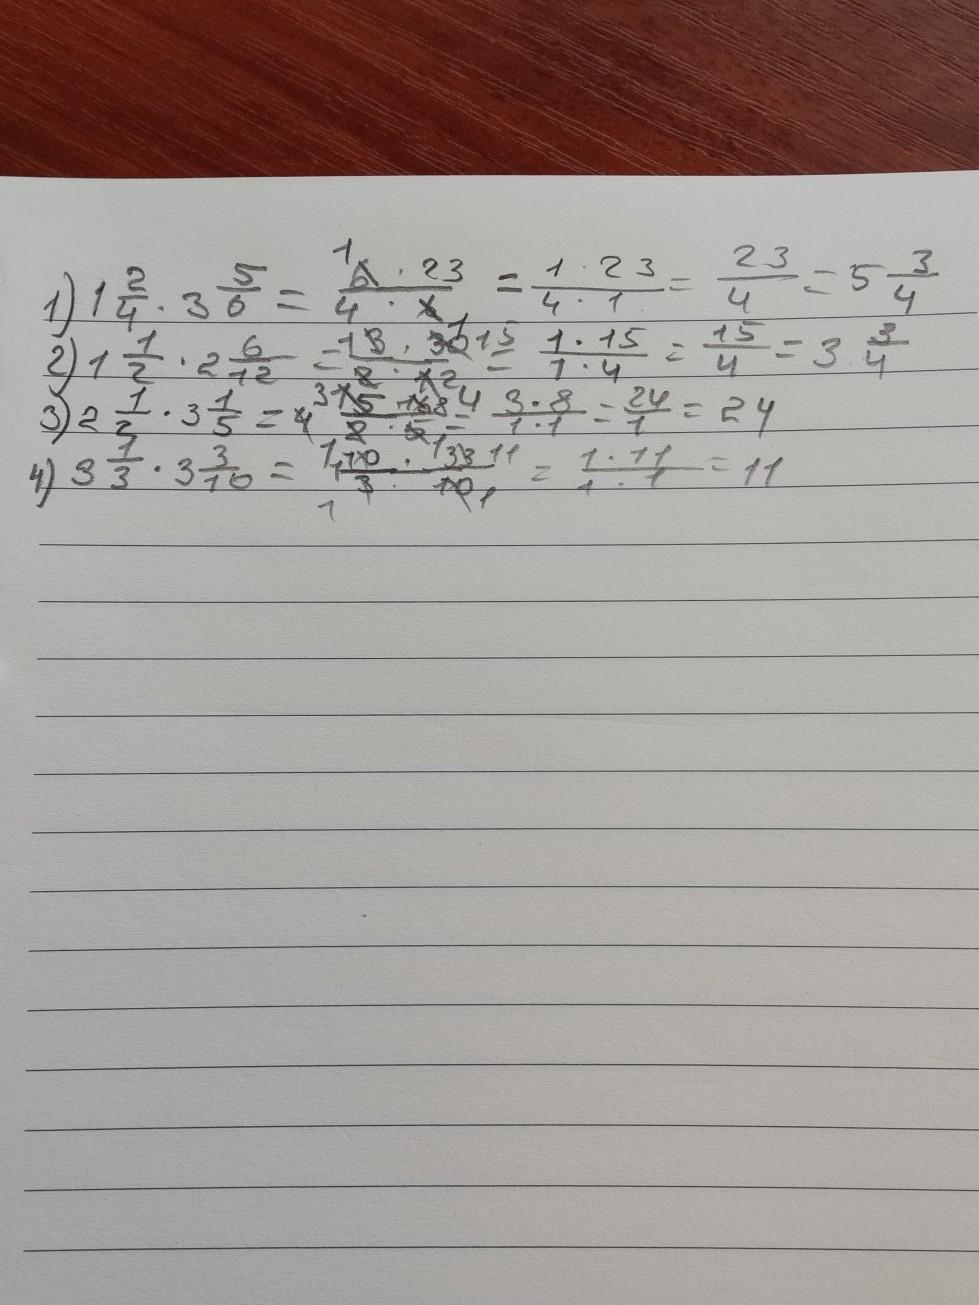 1) 1 2/4 · 3 5/6 = 6 · 23 / 4 · 6 = 1 · 23 / 4 · 1 = 23/4 = 5 3/4
2) 1 1/2 · 2 6/12 = 3 · 30 / 2 · 12 = 1 · 15 / 1 · 4 = 15/4 = 3 3/4
3) 2 1/2 · 3 1/5 = 5 · 16 / 2 · 5 = 3 · 8 / 1 · 1 = 24/1 = 24
4) 3 1/3 · 3 3/10 = 10 · 33 / 3 · 10 = 1 · 11 / 1 · 1 = 11